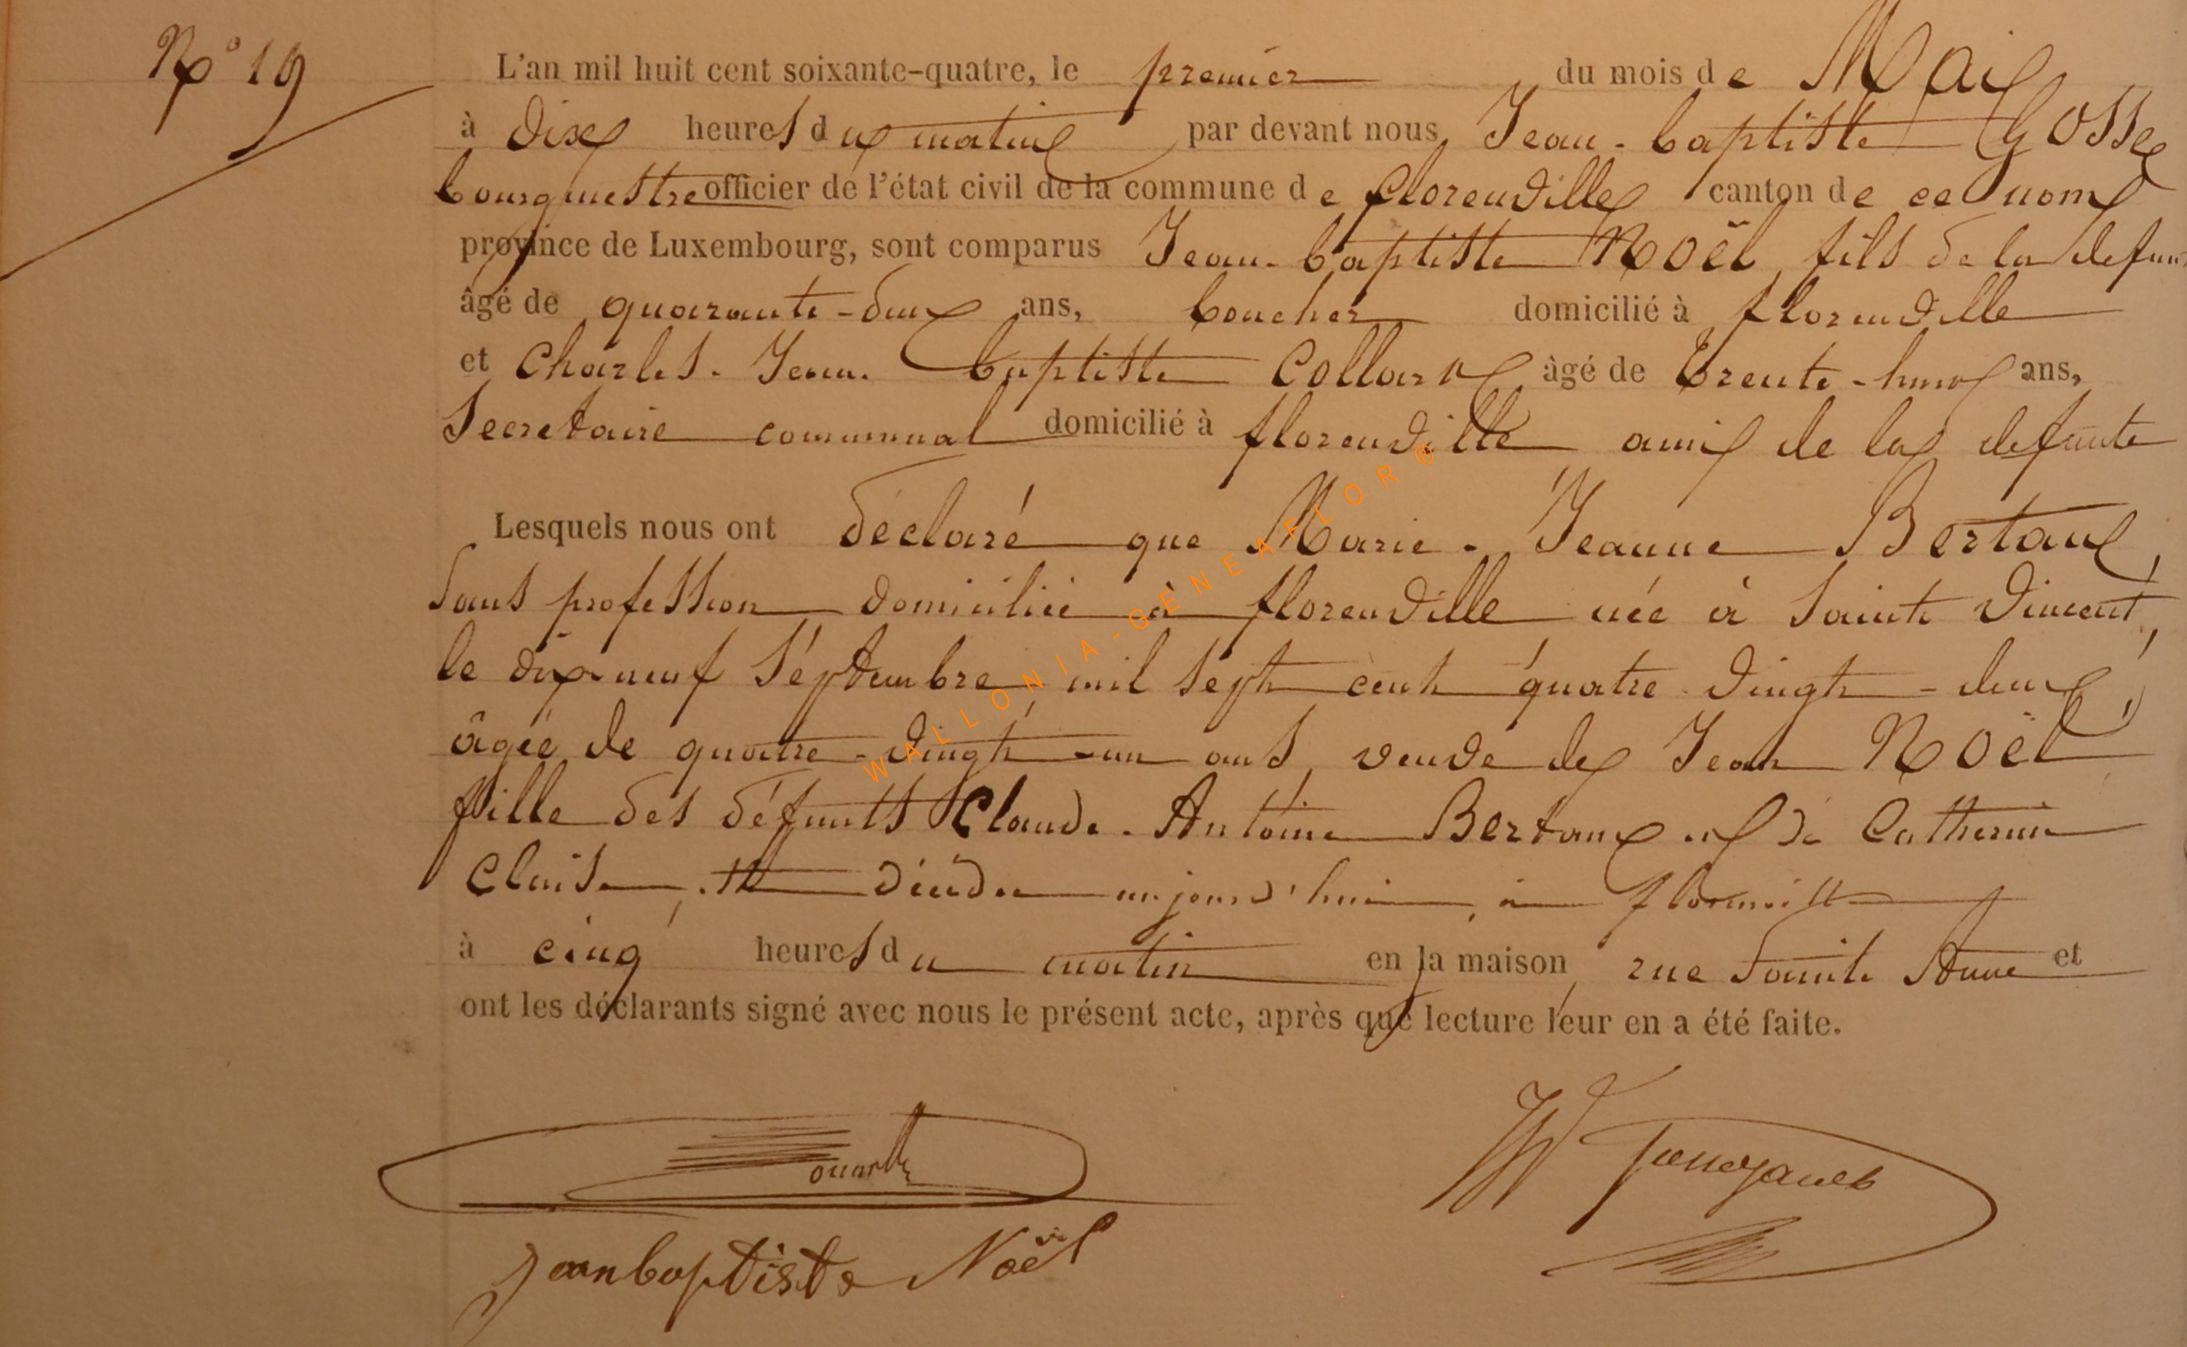 N° 19
L'an mil huit cent soixante-quatre, le premier du mois de Mai
à dix heures du matin par devant nous, Jean-baptiste Gosse
bourgmestre officier de l'état civil de la commune de florenville canton de ce nom
province de Luxembourg, sont comparus Jean-baptiste Noël, fils de la defun
âgé de quarante-deux ans, boucher domicilié à florenville
et Charles-Jean-baptiste Collard, âgé de trente-huit ans,
Secretaire communal domicilié à florenville ami de la defunte
Lesquels nous ont déclaré que Marie-Jeanne Bertaux,
Sans profession domiciliée à florenville née à Sainte Vincent,
le dix-neuf Septembre mil Sept cent quatre vingt-deux,
âgée de quatre-vingt-un ans, veuve de Jean Noël
fille des défunts Claude-Antoine Bertaux et de Catherine
Claise, décédée aujourd'hui, à florenville
à cinq heures du matin en la maison, rue Sainte Anne et
ont les déclarants signé avec nous le présent acte, après que lecture leur en a été faite.
Jeanbaptiste Noël
WALLONIA-GENEAFLOR ®